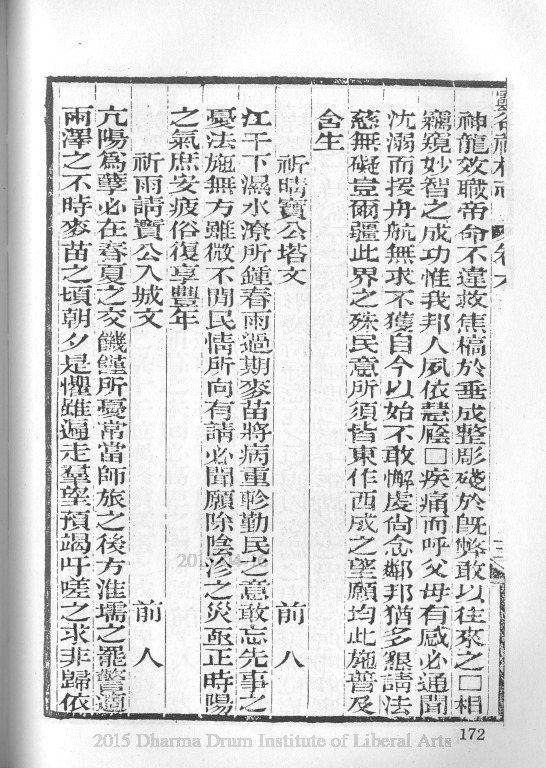 靈谷禪林志 卷六
神龍效職帝命不違救焦槁於垂成整彫殘於旣弊敢以往來之□相
竊窺妙智之成功惟我邦人夙依慧廕□疾痛而呼父母有感必通聞
沈溺而援舟航無求不獲自今以始不敢懈虔尙念鄰邦猶多懇請法
慈無礙豈爾疆此界之殊民意所須皆東作西成之望願均此施普及
含生
祈晴寶公塔文 前人
江干下濕水潦所鍾春雨過期麥苗將病重軫勤民之意敢忘先事之
憂法施無方雖微不閒民情所向有請必聞願除陰沴之災亟正時陽
之氣庶安疲俗復享豐年
祈雨請寶公入城文 前人
亢陽爲孽必在春夏之交饑饉所憂常當師旅之後方淮壖之罷警適
雨澤之不時麥苗之頃朝夕是懼雖遍走羣望預竭吁嗟之求非歸依
172
2015 Dharma Drum Institute of Liberal Arts